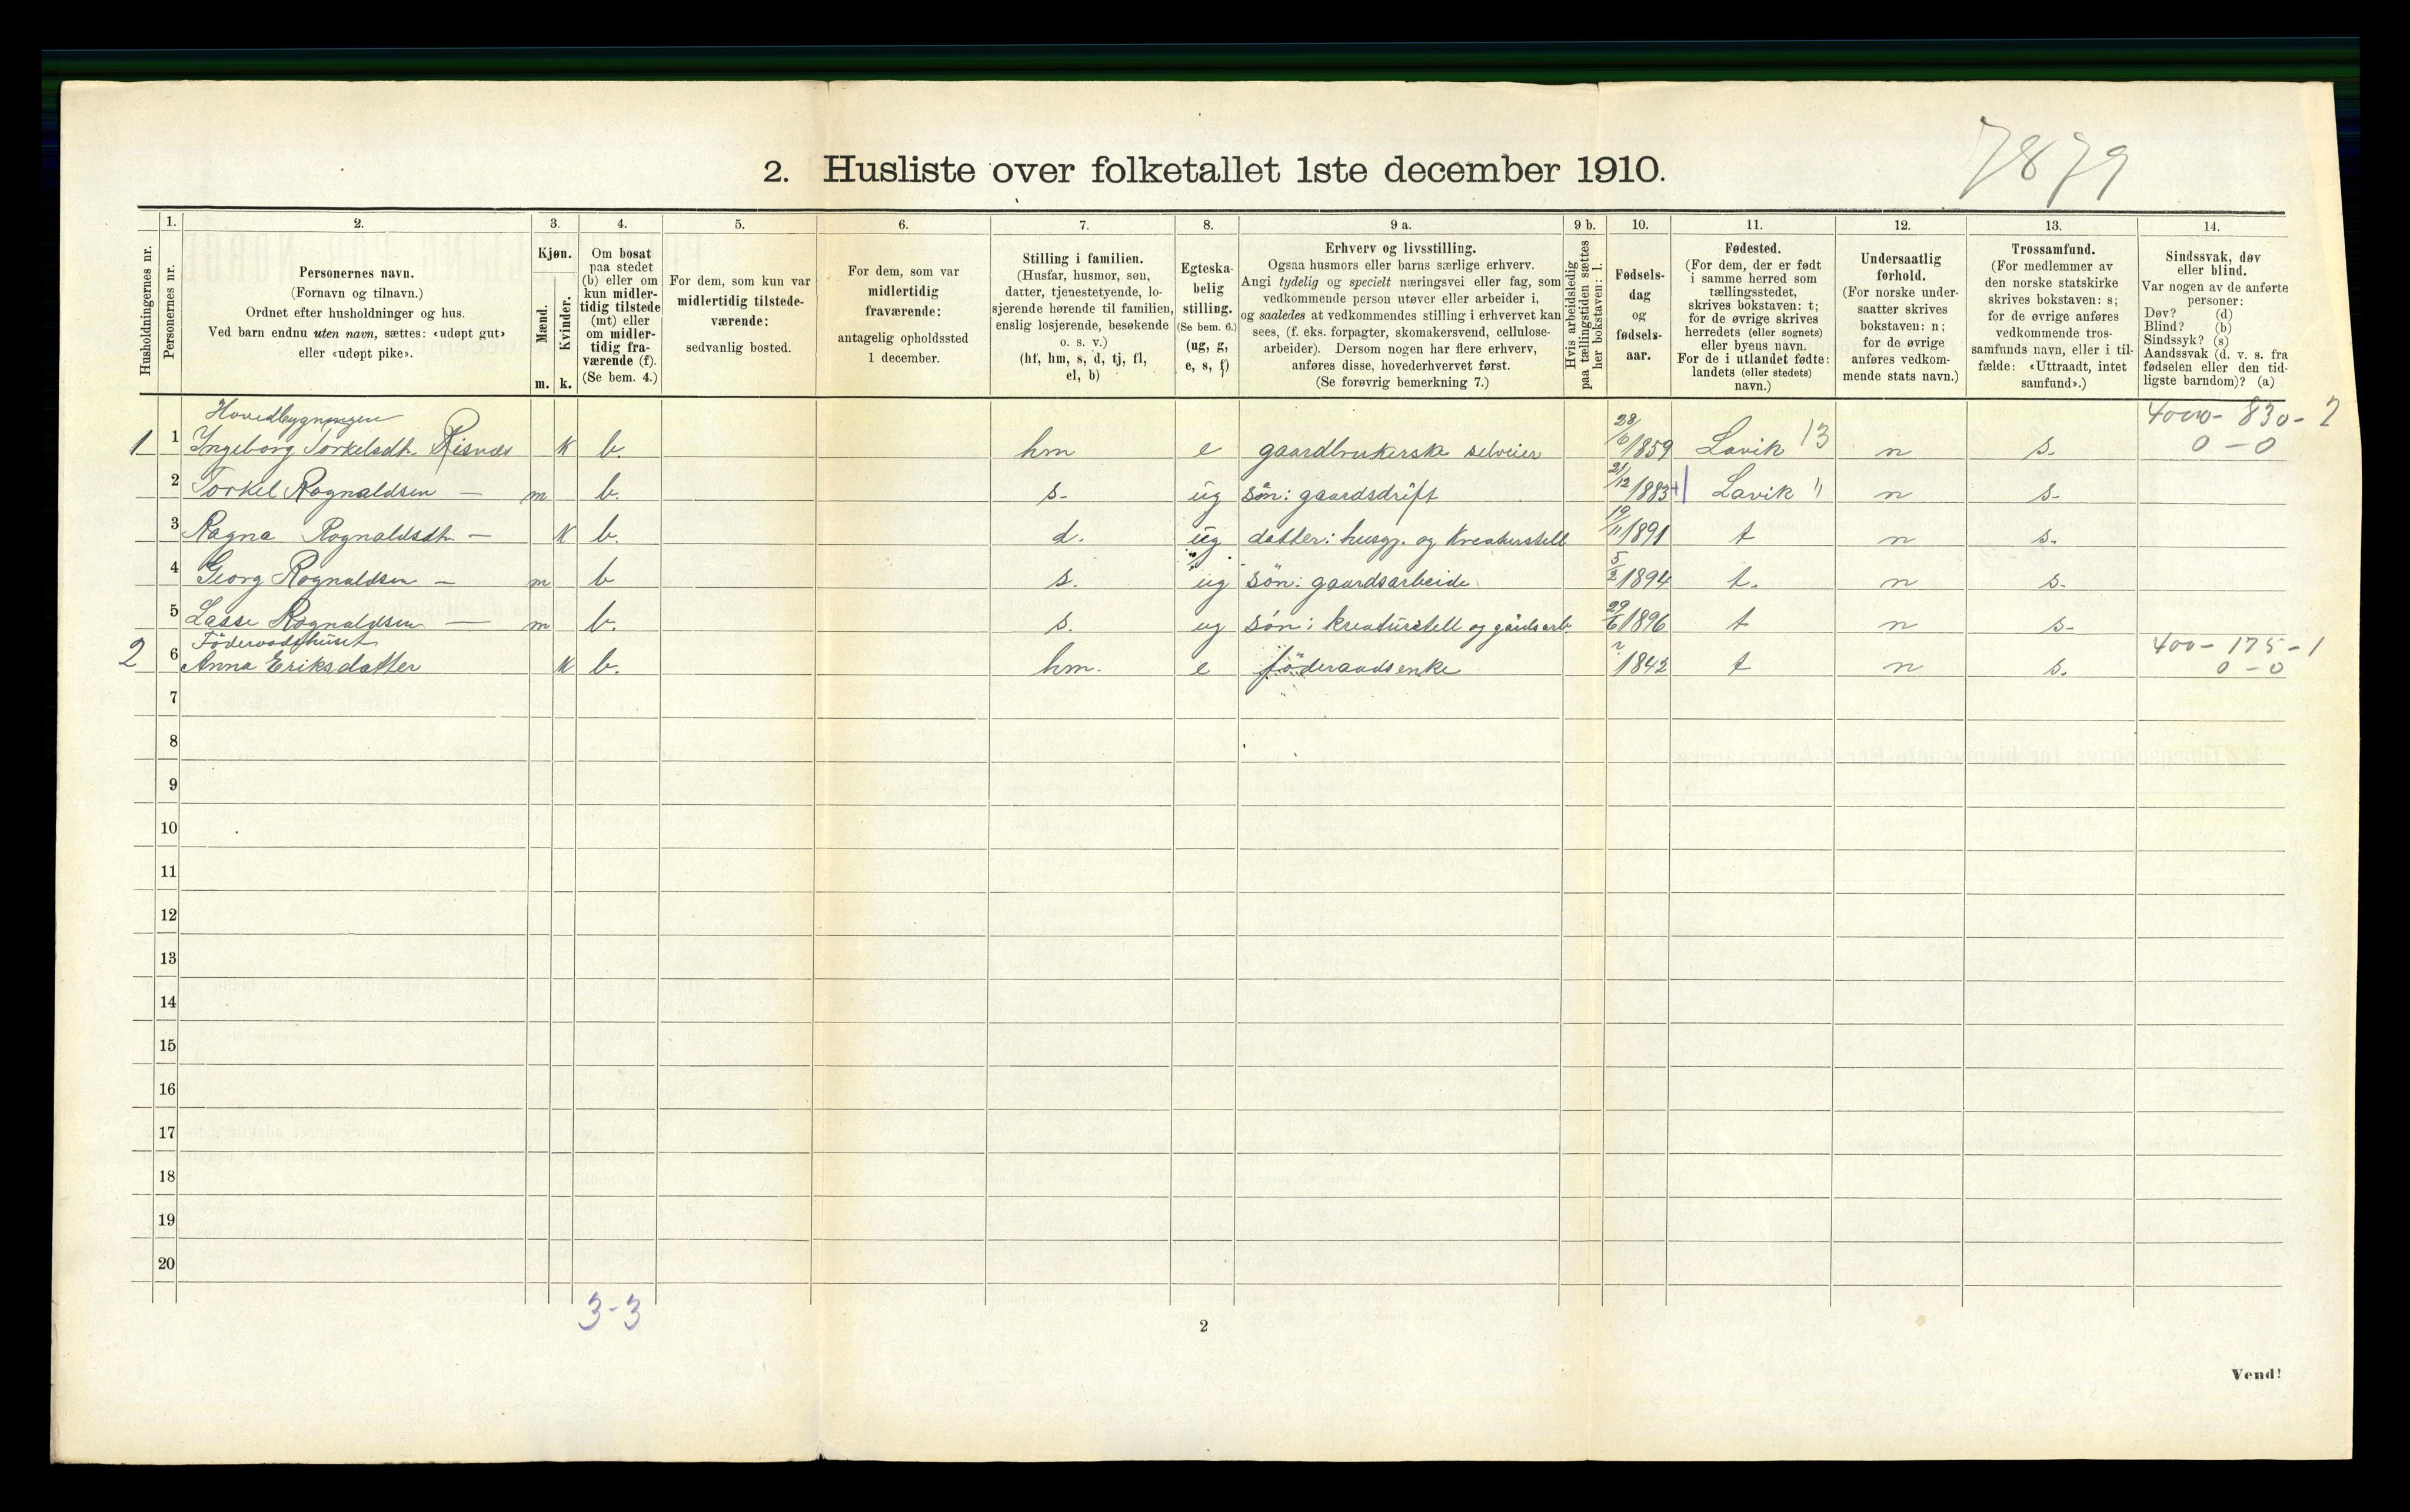 7879
2. Husliste over folketallet 1ste december 1910.
Husholdningernes nr.
1.
Personernes nr.
2.
Personernes navn.
(Fornavn og tilnavn.)
Ordnet efter husholdninger og hus.
Ved barn endnu uten navn, sættes: «udøpt gut»
eller «udøpt pike».
3.
Kjøn.
Mænd.
Kvinder.
m. k.
4.
Om bosat
paa stedet
(b) eller om
kun midler-
tidig tilstede
(mt) eller
om midler-
tidig fra-
værende (f).
(Se bem. 4.)
5.
For dem, som kun var
midlertidig tilstede-
værende:
sedvanlig bosted.
6.
For dem, som var
midlertidig
fraværende:
antagelig opholdssted
1 december.
7.
Stilling i familien.
(Husfar, husmor, søn,
datter, tjenestetyende, lo-
sjerende hørende til familien,
enslig losjerende, besøkende
o. s. v.)
(hf, hm, s, d, tj, fl,
el, b)
8.
Egteska-
belig
stilling.
(Se bem. 6.)
(ug, g,
e, s, f)
9 a.
Erhverv og livsstilling.
Ogsaa husmors eller barns særlige erhverv.
Angi tydelig og specielt næringsvei eller fag, som
vedkommende person utøver eller arbeider i,
og saaledes at vedkommendes stilling i erhvervet kan
sees, (f. eks. forpagter, skomakersvend, cellulose-
arbeider). Dersom nogen har flere erhverv,
anføres disse, hovederhvervet først.
(Se forøvrig bemerkning 7.)
9 b.
Hvis arbeidsledig
paa tællingstiden sættes
her bokstaven: l.
10.
Fødsels-
dag
og
fødsels-
aar.
11.
Fødested.
(For dem, der er født
i samme herred som
tællingsstedet,
skrives bokstaven: t;
for de øvrige skrives
herredets (eller sognets)
eller byens navn.
For de i utlandet fødte:
landets (eller stedets)
navn.)
12.
Undersaatlig
forhold.
(For norske under-
saatter skrives
bokstaven: n;
for de øvrige
anføres vedkom-
mende stats navn.)
13.
Trossamfund.
(For medlemmer av
den norske statskirke
skrives bokstaven: s;
for de øvrige anføres
vedkommende tros-
samfunds navn, eller i til-
fælde: «Uttraadt, intet
samfund».)
14.
Sindssvak, døv
eller blind.
Var nogen av de anførte
personer:
Døv? (d)
Blind? (b)
Sindssyk? (s)
Aandssvak (d. v. s. fra
fødselen eller den tid-
ligste barndom)? (a)
Hovedbygningen 4000 - 830 - 2
1 1 Ingeborg Torkelsdtr. Risnes k b. hm e gaardbrukerske selveier 28/6 1859 Lavik 13 n s. 0 - 0
2 Torkel Rognaldsen — m b. s- ug søn: gaardsdrift 21/12 1883 Lavik " n s-
3 Ragna Rognaldsdtr. — k b. d. ug datter: husgj. og kreaturstell 19/11 1891 t n s.
4 Georg Rognaldsen — m b s. ug søn: gaardsarbeide 5/2 1894 t. n s-
5 Lasse Rognaldsen — m b. s. ug søn: kreaturstell og gårdsarb. 29/6 1896 t n s-
Föderaadshuset 400 - 175 - 1
2 6 Anna Eriksdatter k b. hm. e föderaadsenke 1842 t n s. 0 - 0
7
8
9
10
11
12
13
14
15
16
17
18
19
20
3-3
2
Vend!